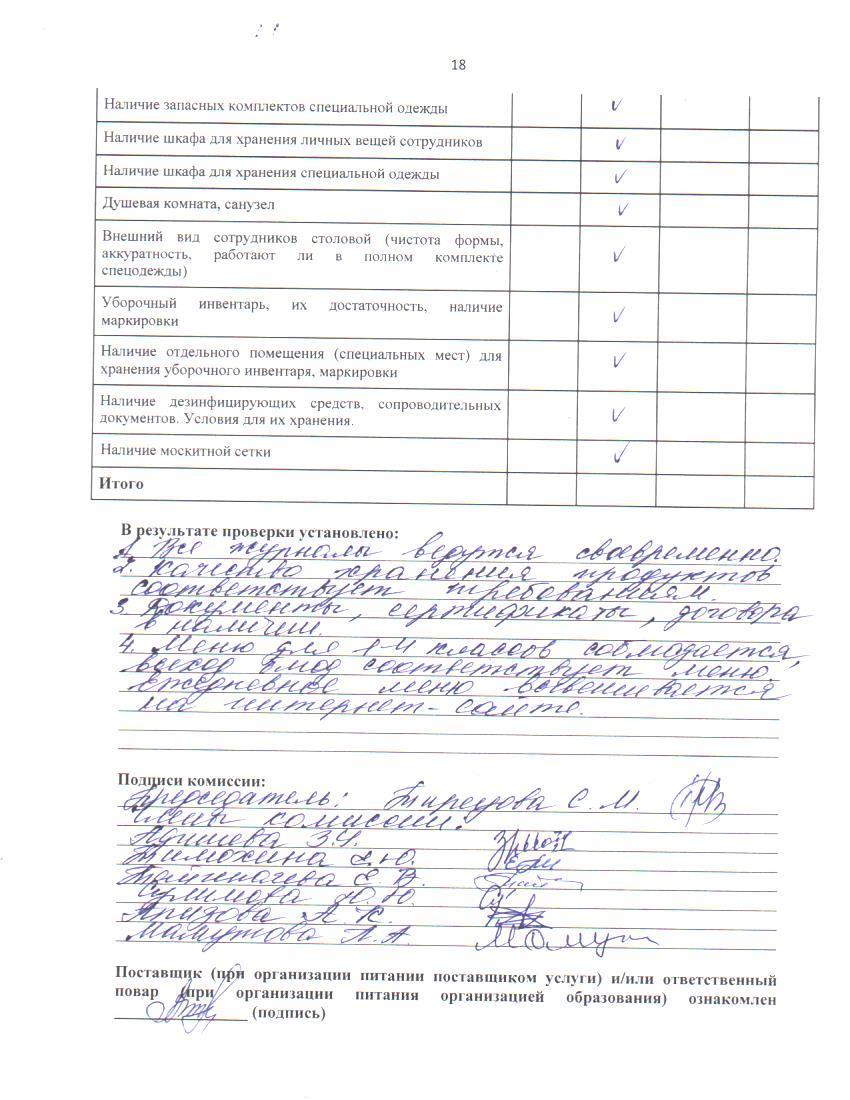 18
Наличие запасных комплектов специальной одежды ✓
Наличие шкафа для хранения личных вещей сотрудников ✓
Наличие шкафа для хранения специальной одежды ✓
Душевая комната, санузел ✓
Внешний вид сотрудников столовой (чистота формы,
аккуратность, работают ли в полном комплекте
спецодежды) ✓
Уборочный инвентарь, их достаточность, наличие
маркировки ✓
Наличие отдельного помещения (специальных мест) для
хранения уборочного инвентаря, маркировки ✓
Наличие дезинфицирующих средств, сопроводительных
документов. Условия для их хранения. ✓
Наличие москитной сетки ✓
Итого
В результате проверки установлено:
1. Все журналы ведутся своевременно.
2. Качество хранения продуктов
соответствует требованиям.
3. Документы, сертификаты, договора
в наличии.
4. Меню для 1-4 классов соблюдается,
выход блюд соответствует меню.
Ежедневное меню вывешивается
на интернет-сайте.
Подписи комиссии:
Председатель: С. М.
Члены комиссии:
З.Ч.
Тимохина Е.Ю.
Е. В.
Сулимова Ю. Ю.
А. К.
Мамутова Л. А.
Поставщик (при организации питании поставщиком услуги) и/или ответственный
повар (при организации питания организацией образования) ознакомлен
(подпись)